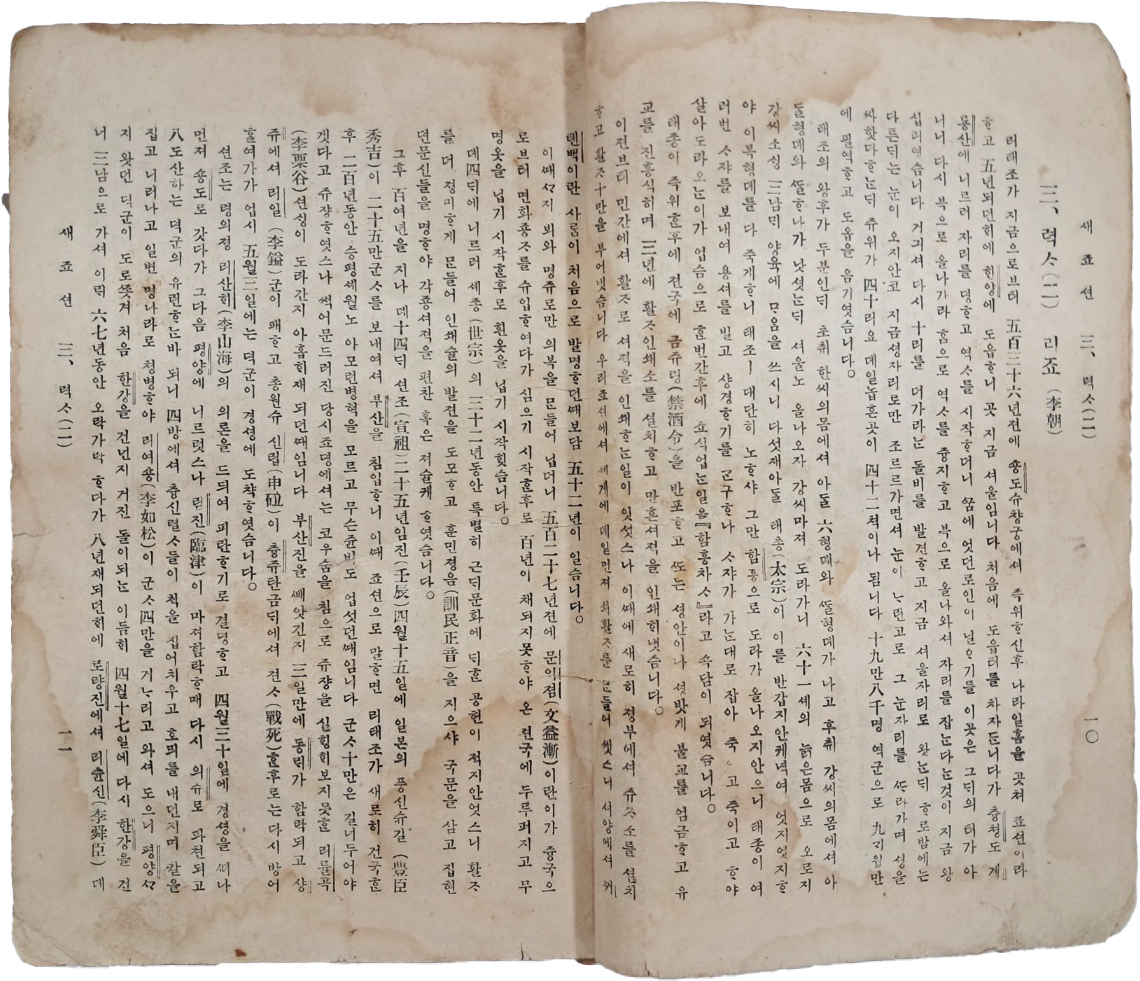 새 죠 션 三、력ᄉᆞ(二) 一〇
三、력ᄉᆞ(二) 리죠 (李朝)
리태조가 지금으로브터 五百三十六년젼에 숑도슈챵궁에셔 즉위ᄒᆞ신후 나라일홈을 곳쳐 죠션이라
ᄒᆞ고 五년되던ᄒᆡ에 한양에 도읍ᄒᆞ니 곳 지금 셔울임니다 처음에 도읍터를 차자ᄃᆞᆫ니다가 츙쳥도 계
룡산에 니르러 자리를 뎡ᄒᆞ고 역ᄉᆞ를 시작ᄒᆞ더니 ᄭᅮᆷ에 엇던로인이 닐ᄋᆞ기를 이곳은 그ᄃᆡ의 터가 아
니니 다시 북으로 올나가라 ᄒᆞᆷ으로 역ᄉᆞ를 즁지ᄒᆞ고 북으로 올나와셔 자리를 잡는다는것이 지금 왕
십리엿슴니다 거긔셔 다시 十리를 더가라는 돌비를 발견ᄒᆞ고 지금 셔울자리로 왓는ᄃᆡ ᄒᆞ로밤에는
다른ᄃᆡ는 눈이 오지안코 지금셩자리로만 조르르가면셔 눈이 는란고로 그 눈자리를 ᄯᅡ라가며 셩을
싸핫다ᄒᆞ는ᄃᆡ 쥬위가 四十리요 뎨일놉흔곳이 四十二쳐이나 됨니다 十九만八千명 역군으로 九ᄀᆡ월만
에 필역ᄒᆞ고 도읍을 옴기엿슴니다。
태조의 왕후가 두분인ᄃᆡ 초취 한씨의몸에셔 아ᄃᆞᆯ 六형뎨와 ᄯᆞᆯ형뎨가 나고 후취 강씨의몸에셔 아
ᄃᆞᆯ형뎨와 ᄯᆞᆯᄒᆞ나가 낫셧는ᄃᆡ 셔울노 올나오자 강씨마져 도라가니 六十一세의 늙은몸으로 오로지
강씨소ᄉᆡᆼ 三남ᄆᆡ 양육에 ᄆᆞ음을 쓰시니 다섯재아ᄃᆞᆯ 태종(太宗)이 이를 반갑지안케녁여 엇지엇지ᄒᆞ
야 이복형뎨를 다 죽게ᄒᆞ니 태조ㅣ 대단히 노ᄒᆞ샤 그만 함흥으로 도라가 올나오지안으니 태종이 여
러번 ᄉᆞ쟈를 보내여 용셔를 빌고 샹경ᄒᆞ기를 군구ᄒᆞ나 ᄉᆞ쟈가 가는대로 잡아 죽고 죽이고 ᄒᆞ야
살아도라오는이가 업슴으로 ᄒᆞᆫ번간후에 쇼식업는일을『함흥차ᄉᆞ』라고 속담이 되엿슴니다。
태종이 즉위ᄒᆞᆫ후에 젼국에 금쥬령(禁酒令)을 반포ᄒᆞ고 ᄯᅩ는 셩안이나 셩밧게 불교를 엄금ᄒᆞ고 유
교를 진흥식히며 三년에 활ᄌᆞ인쇄소를 설치ᄒᆞ고 만흔셔젹을 인쇄ᄒᆡ냇슴니다。
이젼브터 민간에셔 활ᄌᆞ로 셔젹을 인쇄ᄒᆞ는일이 잇섯스나 이ᄯᅢ에 새로히 졍부에셔 쥬ᄌᆞ소를 셜치
ᄒᆞ고 활ᄌᆞ十만을 부어냇슴니다 우리죠션에셔 세계에 뎨일먼져 쇠활ᄌᆞ를 ᄆᆞᆫ들어 썻스니 셔양에셔 커
텐벡이란 사ᄅᆞᆷ이 처음으로 발명ᄒᆞ던ᄯᅢ보담 五十二년이 일슴니다。
이ᄯᅢᄭᆞ지 뵈와 명쥬로만 의복을 ᄆᆞᆫ들어 닙더니 五百二十七년젼에 문익졈(文益漸)이란이가 즁국으
로브터 면화죵ᄌᆞ를 슈입ᄒᆞ여다가 심으기 시작ᄒᆞᆫ후로 百년이 채되지못ᄒᆞ야 온 젼국에 두루퍼지고 무
명옷을 닙기 시작ᄒᆞᆫ후로 흰옷을 닙기 시작ᄒᆡᆺ슴니다。
뎨四ᄃᆡ에 니르러 세종(世宗)의 三十二년동안 특별히 근ᄃᆡ문화에 ᄃᆡᄒᆞᆫ 공헌이 젹지안엇스니 활ᄌᆞ
를 더 졍미ᄒᆞ게 ᄆᆞᆫ들어 인쇄슐의 발젼을 도모ᄒᆞ고 훈민졍음(訓民正音)을 지으샤 국문을 삼고 집현
뎐문신들을 명ᄒᆞ야 각죵셔젹을 편찬 혹은 져슐케 ᄒᆞ엿슴니다。
그후 百여년을 지나 뎨十四ᄃᆡ 션조(宣祖)二十五년임진(壬辰)四월十五일에 일본의 풍신슈길 (豐臣
秀吉)이 二十五만군ᄉᆞ를 보내여셔 부산을 침입ᄒᆞ니 이ᄯᅢ 죠션으로 말ᄒᆞ면 리태조가 새로히 건국ᄒᆞᆫ
후 二百년동안 승평세월노 아모런병혁을 모르고 무슨쥰비도 업섯던ᄯᅢ임니다 군ᄉᆞ十만은 길너두어야
겟다고 쥬쟝ᄒᆞ엿스나 썩어문드러진 당시죠뎡에셔는 코우슴을 침으로 쥬쟝을 실ᄒᆡᆼᄒᆡ보지못ᄒᆞᆫ 리률곡
(李栗谷)션ᄉᆡᆼ이 도라간지 아홉ᄒᆡ재 되던ᄯᅢ임니다 부산진을 ᄲᅢ앗긴지 三일만에 동ᄅᆡ가 함락되고 샹
쥬에셔 리일 (李鎰)군이 패ᄒᆞ고 총원슈 신립(申砬)이 츙쥬탄금ᄃᆡ에셔 젼ᄉᆞ(戰死)ᄒᆞᆫ후로는 다시 방어
ᄒᆞᆯ여가가 업시 五월三일에는 뎍군이 경셩에 도챡ᄒᆞ엿슴니다。
션조는 령의졍 리산ᄒᆡ(李山海)의 의론을 드르여 피란ᄒᆞ기로 결뎡ᄒᆞ고 四월三十일에 경셩을 ᄯᅥ나
먼져 숑도로 갓다가 그다음 평양에 니르럿스나 림진(臨津)이 마져함락ᄒᆞ매 다시 의쥬로 파쳔되고
八도산하는 뎍군의 유린ᄒᆞ는바 되니 四방에셔 츙신렬ᄉᆞ들이 ᄎᆡᆨ을 집어치우고 호믜를 내던지며 칼을
집고 니러나고 일변 명나라로 쳥병ᄒᆞ야 리여숑(李如松)이 군ᄉᆞ四만을 거ᄂᆞ리고 와셔 도으니 평양ᄭᆞ
지 왓던 뎍군이 도로ᄶᅩᆺ겨 처음 한강을 건넌지 거진 돌이되는 이듬ᄒᆡ 四월十七일에 다시 한강을 건
너 三남으로 가셔 이ᄅᆡ 六七년동안 오락가락 ᄒᆞ다가 八년재되던ᄒᆡ에 로량진에셔 리슌신(李舜臣) 뎨
새 죠 션 三、력ᄉᆞ(二) 一一